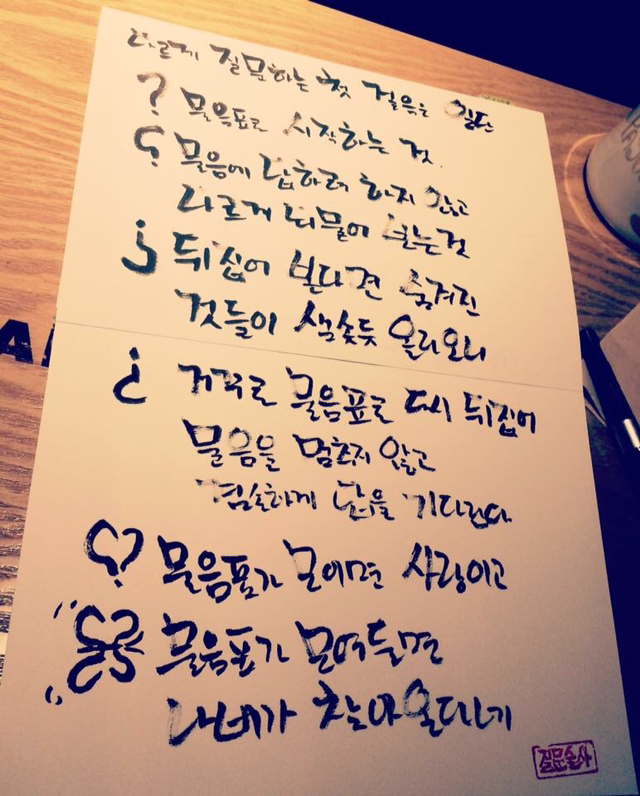 다르게 질문하는 첫 걸음은 일단
? 물음표로 시작하는 것.
물음에 답하려 하지 않고
다르게 되물어 보는 것
뒤집어 본다면 숨겨진
것들이 샘솟듯 올라오니
¿ 거꾸로 물음표로 다시 뒤집어
물음을 멈추지 않고
겸손하게 답을 기다린다
물음표가 모이면 사랑이고
물음표가 모여들면
나비가 찾아온다네
질문술사